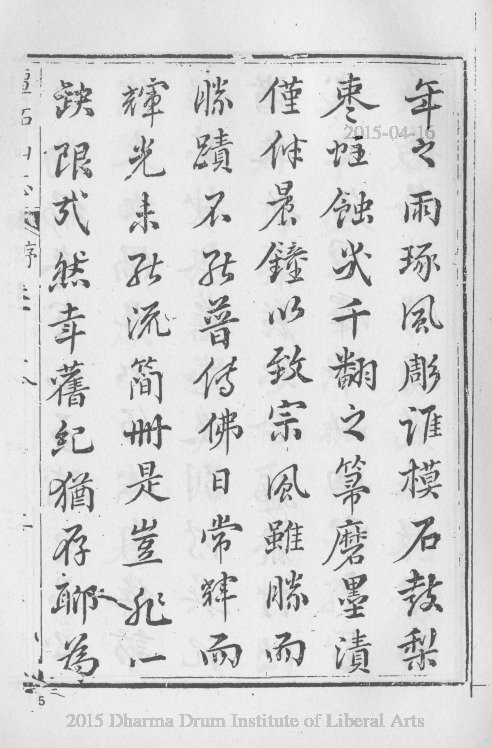 年之雨琢風彫誰模石鼓梨
棗蛀蝕災千翻之筆磨墨漬
僅伴晨鐘以致宗風雖勝而
勝蹟不能普傳佛日常輝而
輝光未能流簡冊是豈非一
缺限哉然幸舊紀猶存聊為
序
2015-04-16
5
2015 Dharma Drum Institute of Liberal Arts